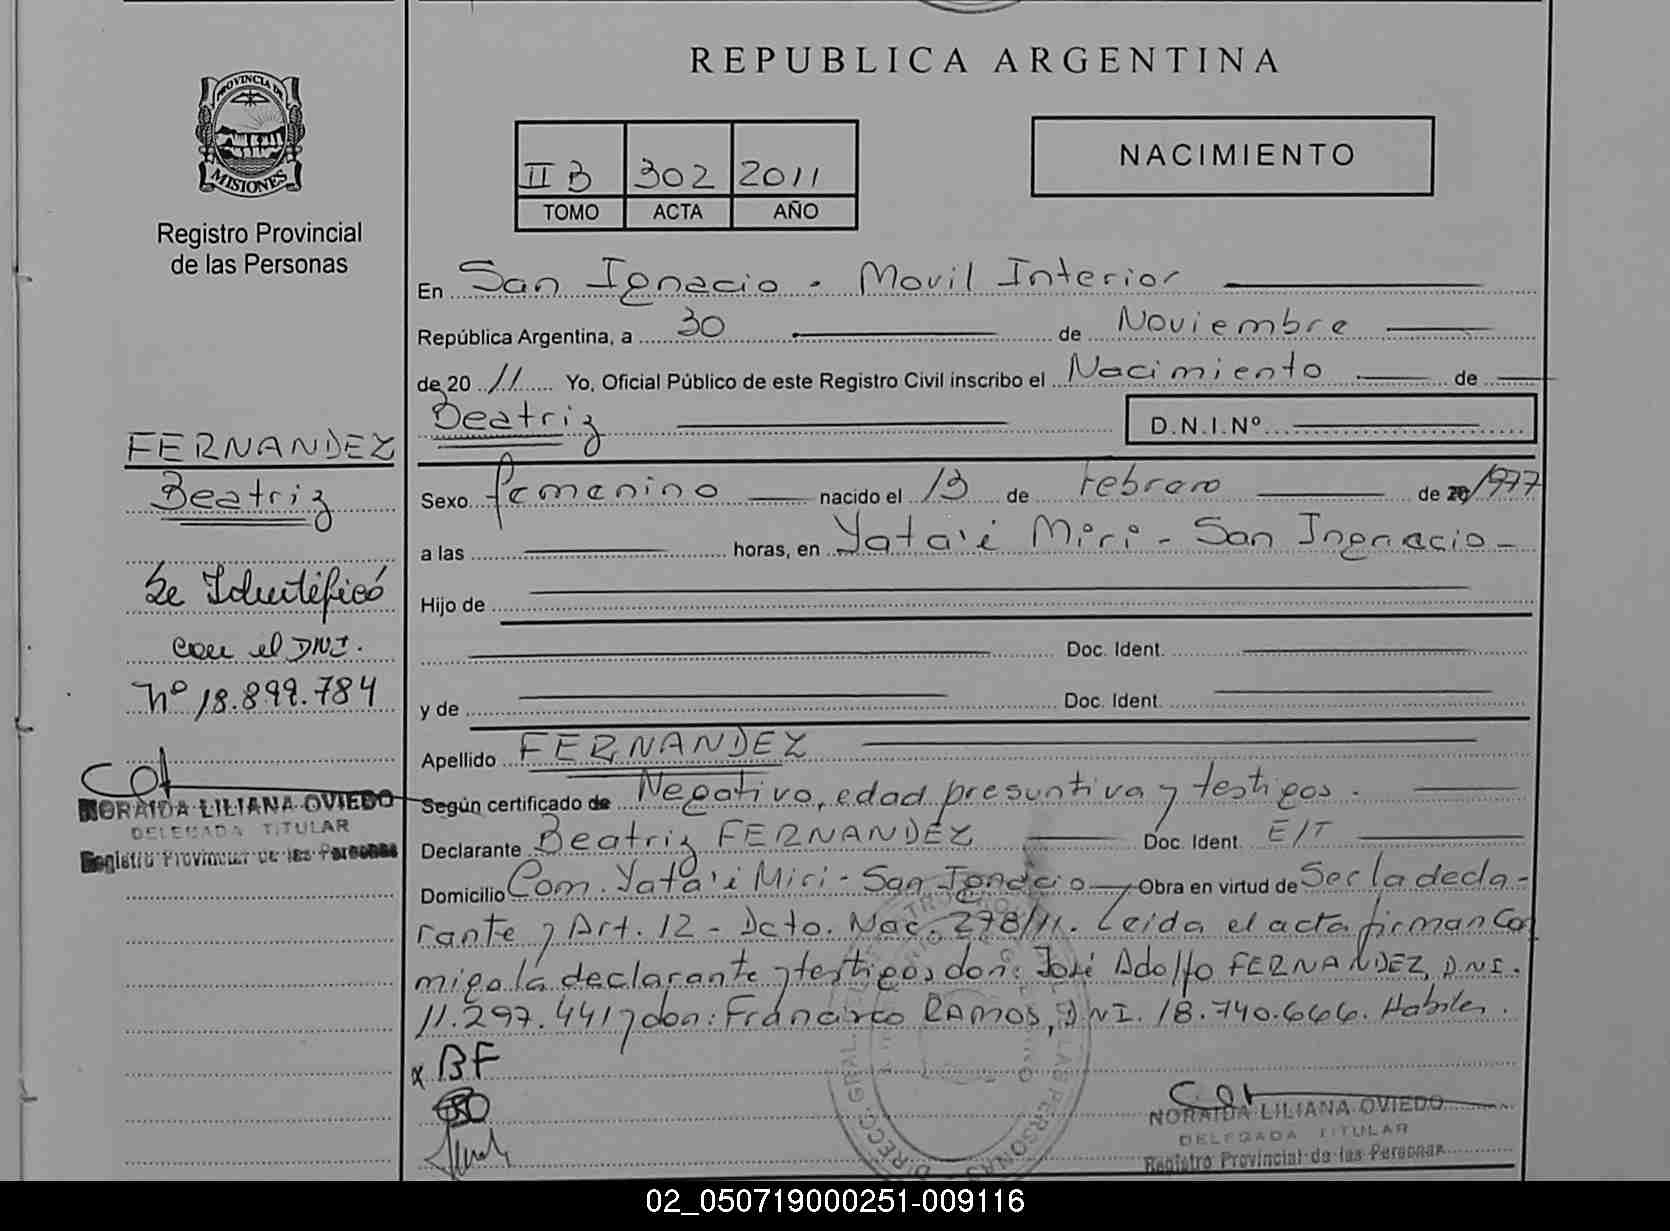 REPUBLICA ARGENTINA
PROVINCIA DE
MISIONES
Registro Provincial
de las Personas
II B 302 2011
TOMO ACTA AÑO
NACIMIENTO
En San Ignacio - Movil Interior
República Argentina, a 30 de Noviembre
de 20 11 Yo, Oficial Público de este Registro Civil inscribo el Nacimiento de
Beatriz D.N.I.Nº
FERNANDEZ
Beatriz
Se Identificó
con el DNI.
Nº 18.899.784
NORAIDA LILIANA OVIEDO
DELEGADA TITULAR
Registro Provincial de las Personas
Sexo femenino nacido el 13 de Febrero de 1977
a las horas, en Yata'i Miri - San Ingnacio -
Hijo de
Doc. Ident.
y de Doc. Ident.
Apellido FERNANDEZ
Según certificado de Negativo, edad presuntiva y testigos.
Declarante Beatriz FERNANDEZ Doc. Ident. E/T
Domicilio Com. Yata'i Miri - San Ignacio Obra en virtud de Ser la decla-
rante y Art. 12 - Dcto. Nac. 278/11. Leida el acta firman con
migo la declarante y testigos don: José Adolfo FERNANDEZ, DNI.
11.297.441 y don: Francisco RAMOS, DNI. 18.740.646. Habiles.
x BF
NORAIDA LILIANA OVIEDO
DELEGADA TITULAR
Registro Provincial de las Personas
02_050719000251-009116